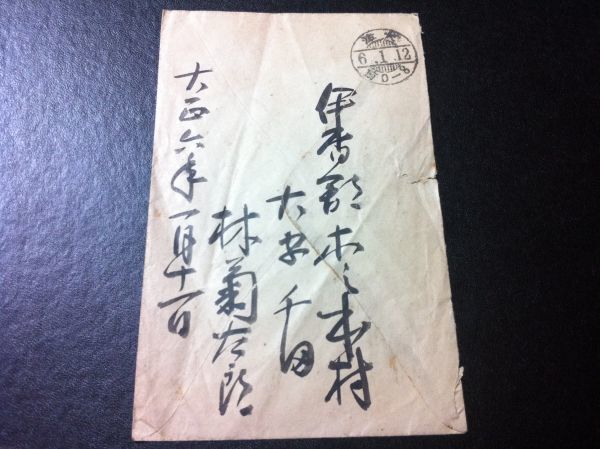 伊香郡木之本村
大字千田
林菊右郎
大正六年一月十一日
6.1.12